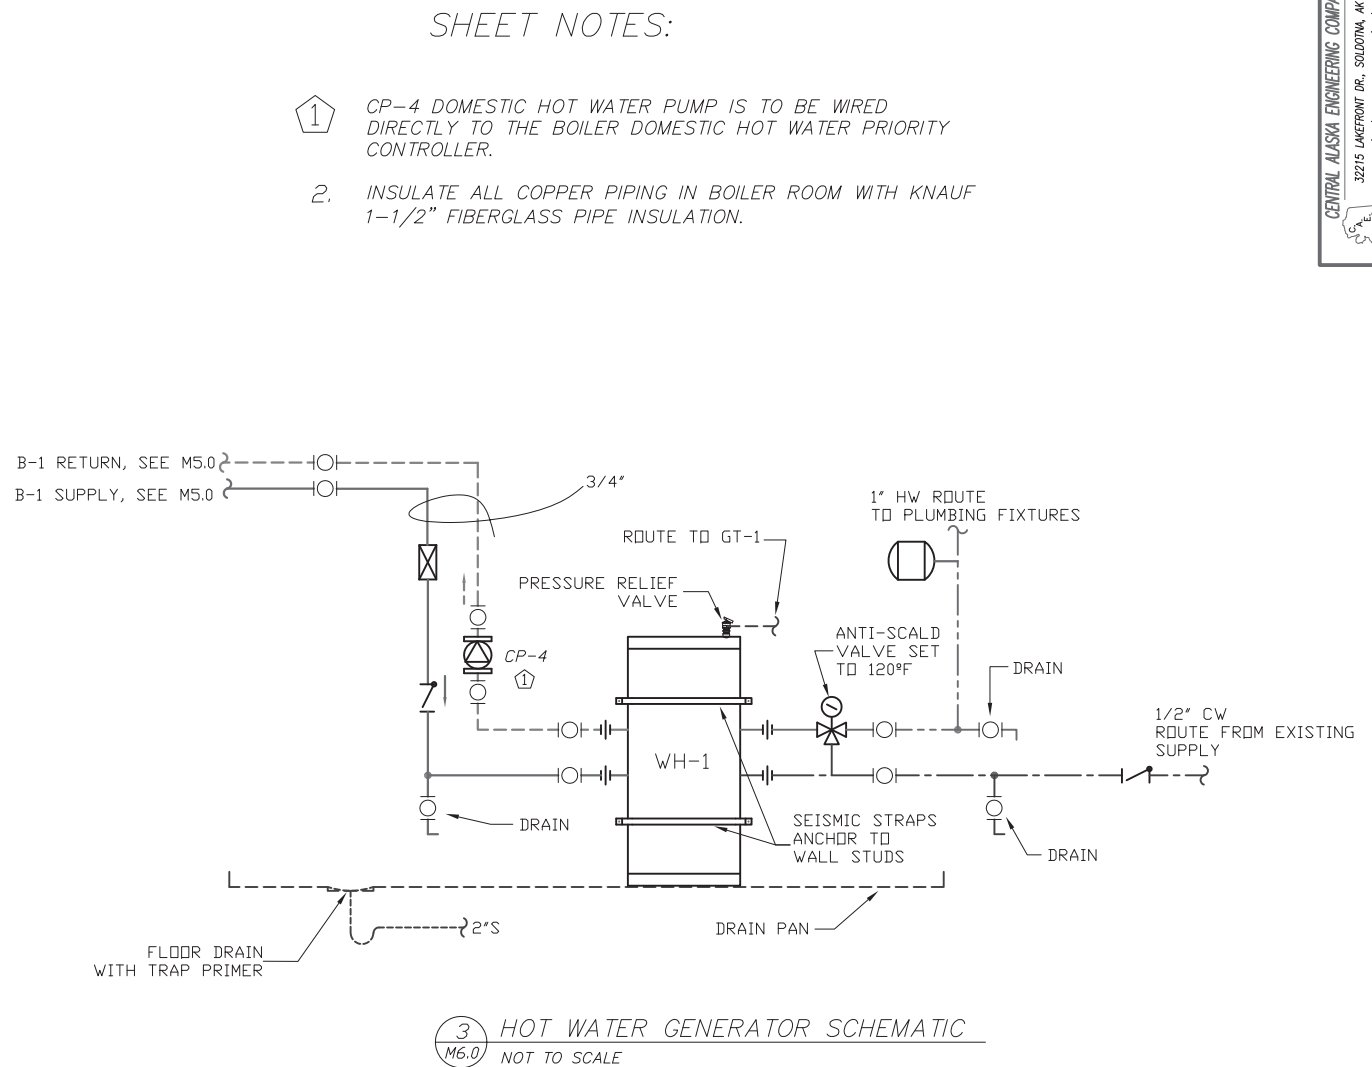 SHEET NOTES:
1 CP-4 DOMESTIC HOT WATER PUMP IS TO BE WIRED
DIRECTLY TO THE BOILER DOMESTIC HOT WATER PRIORITY
CONTROLLER.
2. INSULATE ALL COPPER PIPING IN BOILER ROOM WITH KNAUF
1-1/2" FIBERGLASS PIPE INSULATION.
CENTRAL ALASKA ENGINEERING
32215 LAKEFRONT DR., SOLDOTNA, AK
C.A.E.
B-1 RETURN, SEE M5.0
B-1 SUPPLY, SEE M5.0
3/4"
1" HW ROUTE
TO PLUMBING FIXTURES
ROUTE TO GT-1
PRESSURE RELIEF
VALVE
ANTI-SCALD
VALVE SET
TO 120ºF
CP-4
1
DRAIN
1/2" CW
ROUTE FROM EXISTING
SUPPLY
WH-1
DRAIN
SEISMIC STRAPS
ANCHOR TO
WALL STUDS
DRAIN
DRAIN PAN
2"S
FLOOR DRAIN
WITH TRAP PRIMER
3 HOT WATER GENERATOR SCHEMATIC
M6.0 NOT TO SCALE